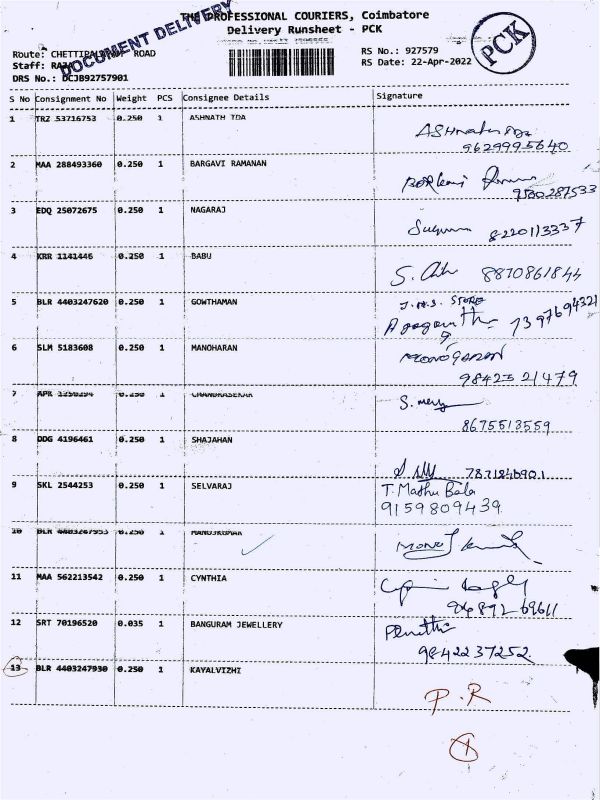 THE PROFESSIONAL COURIERS, Coimbatore
DOCUMENT DELIVERY
Delivery Runsheet - PCK
PCK
Route: CHETTIPALAYAM ROAD
RS No.: 927579
Staff:
RS Date: 22-Apr-2022
DRS No.: DCJB92757901
S No Consignment No Weight PCS Consignee Details Signature
1 TRZ 53716753 0.250 1 ASHNATH TDA
9629995640
2 MAA 288493360 0.250 1 BARGAVI RAMANAN
9500287533
3 EDQ 25072675 0.250 1 NAGARAJ
8220113337
4 KRR 1141446 0.250 1 BABU
8870861844
5 BLR 4403247620 0.250 1 GOWTHAMAN J.M.S. STORE
7397694321
6 SLM 5183608 0.250 1 MANOHARAN
9842521479
7 APR 1250294 0.250 1 CHANDRASEKAR
8675513559
8 DDG 4196461 0.250 1 SHAJAHAN
7871840901
9 SKL 2544253 0.250 1 SELVARAJ T. Mathu Bala
9159809439
10 BLR 4403247953 0.250 1 MANOJKUMAR
11 MAA 562213542 0.250 1 CYNTHIA
9489269611
12 SRT 70196520 0.035 1 BANGURAM JEWELLERY
9842237252
13 BLR 4403247930 0.250 1 KAYALVIZHI
P.R
1